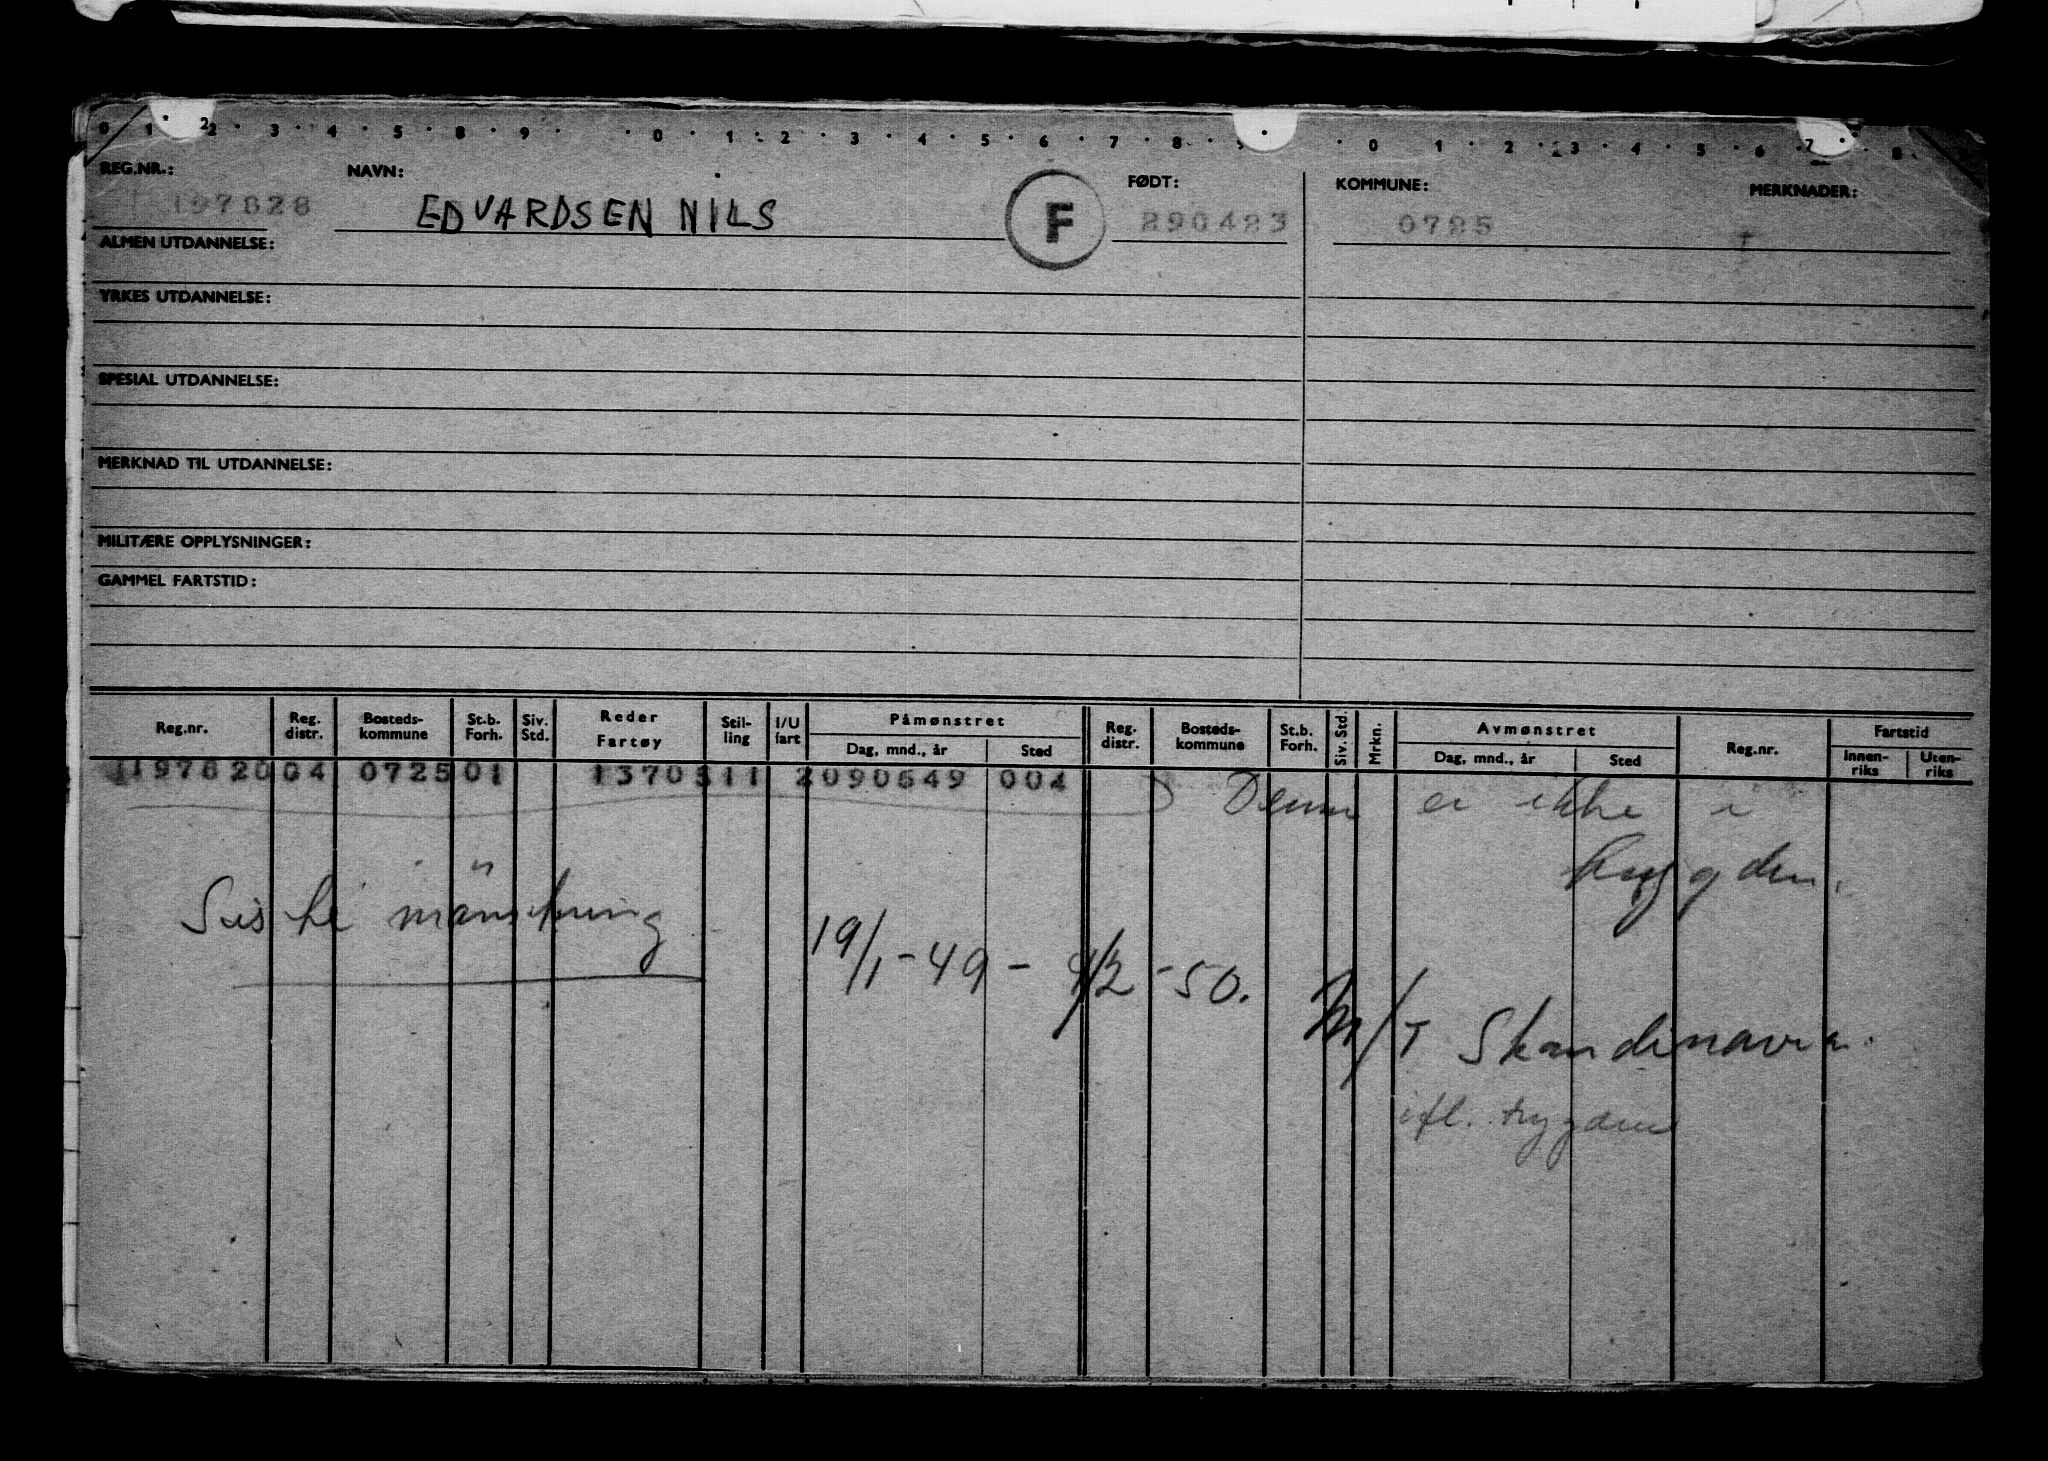 0 1 2 2 3 4 5 8 9 0 1 2 3 4 5 6 7 8 9 0 1 2 3 4 5 6 7 8
REG.NR.: NAVN: FØDT: KOMMUNE: MERKNADER:
197828 EDVARDSEN NILS F 290423 0725
ALMEN UTDANNELSE:
YRKES UTDANNELSE:
SPESIAL UTDANNELSE:
MERKNAD TIL UTDANNELSE:
MILITÆRE OPPLYSNINGER:
GAMMEL FARTSTID:
Reg.nr. Reg. distr. Bosteds-kommune St.b. Forh. Siv. Std. Reder Fartøy Stil-ling I/U fart Påmønstret Reg. distr. Bosteds-kommune St.b. Forh. Siv. Std. Mrkn. Avmønstret Reg.nr. Fartstid
Dag, mnd., år Sted Dag, mnd., år Sted Innen-riks Uten-riks
04 0725 01 1370 11 2090649 004
er ikke i
trygden.
Sis te mønstring
19/1-49 - /2-50.
M/T Skandinavia.
ifl. trygden